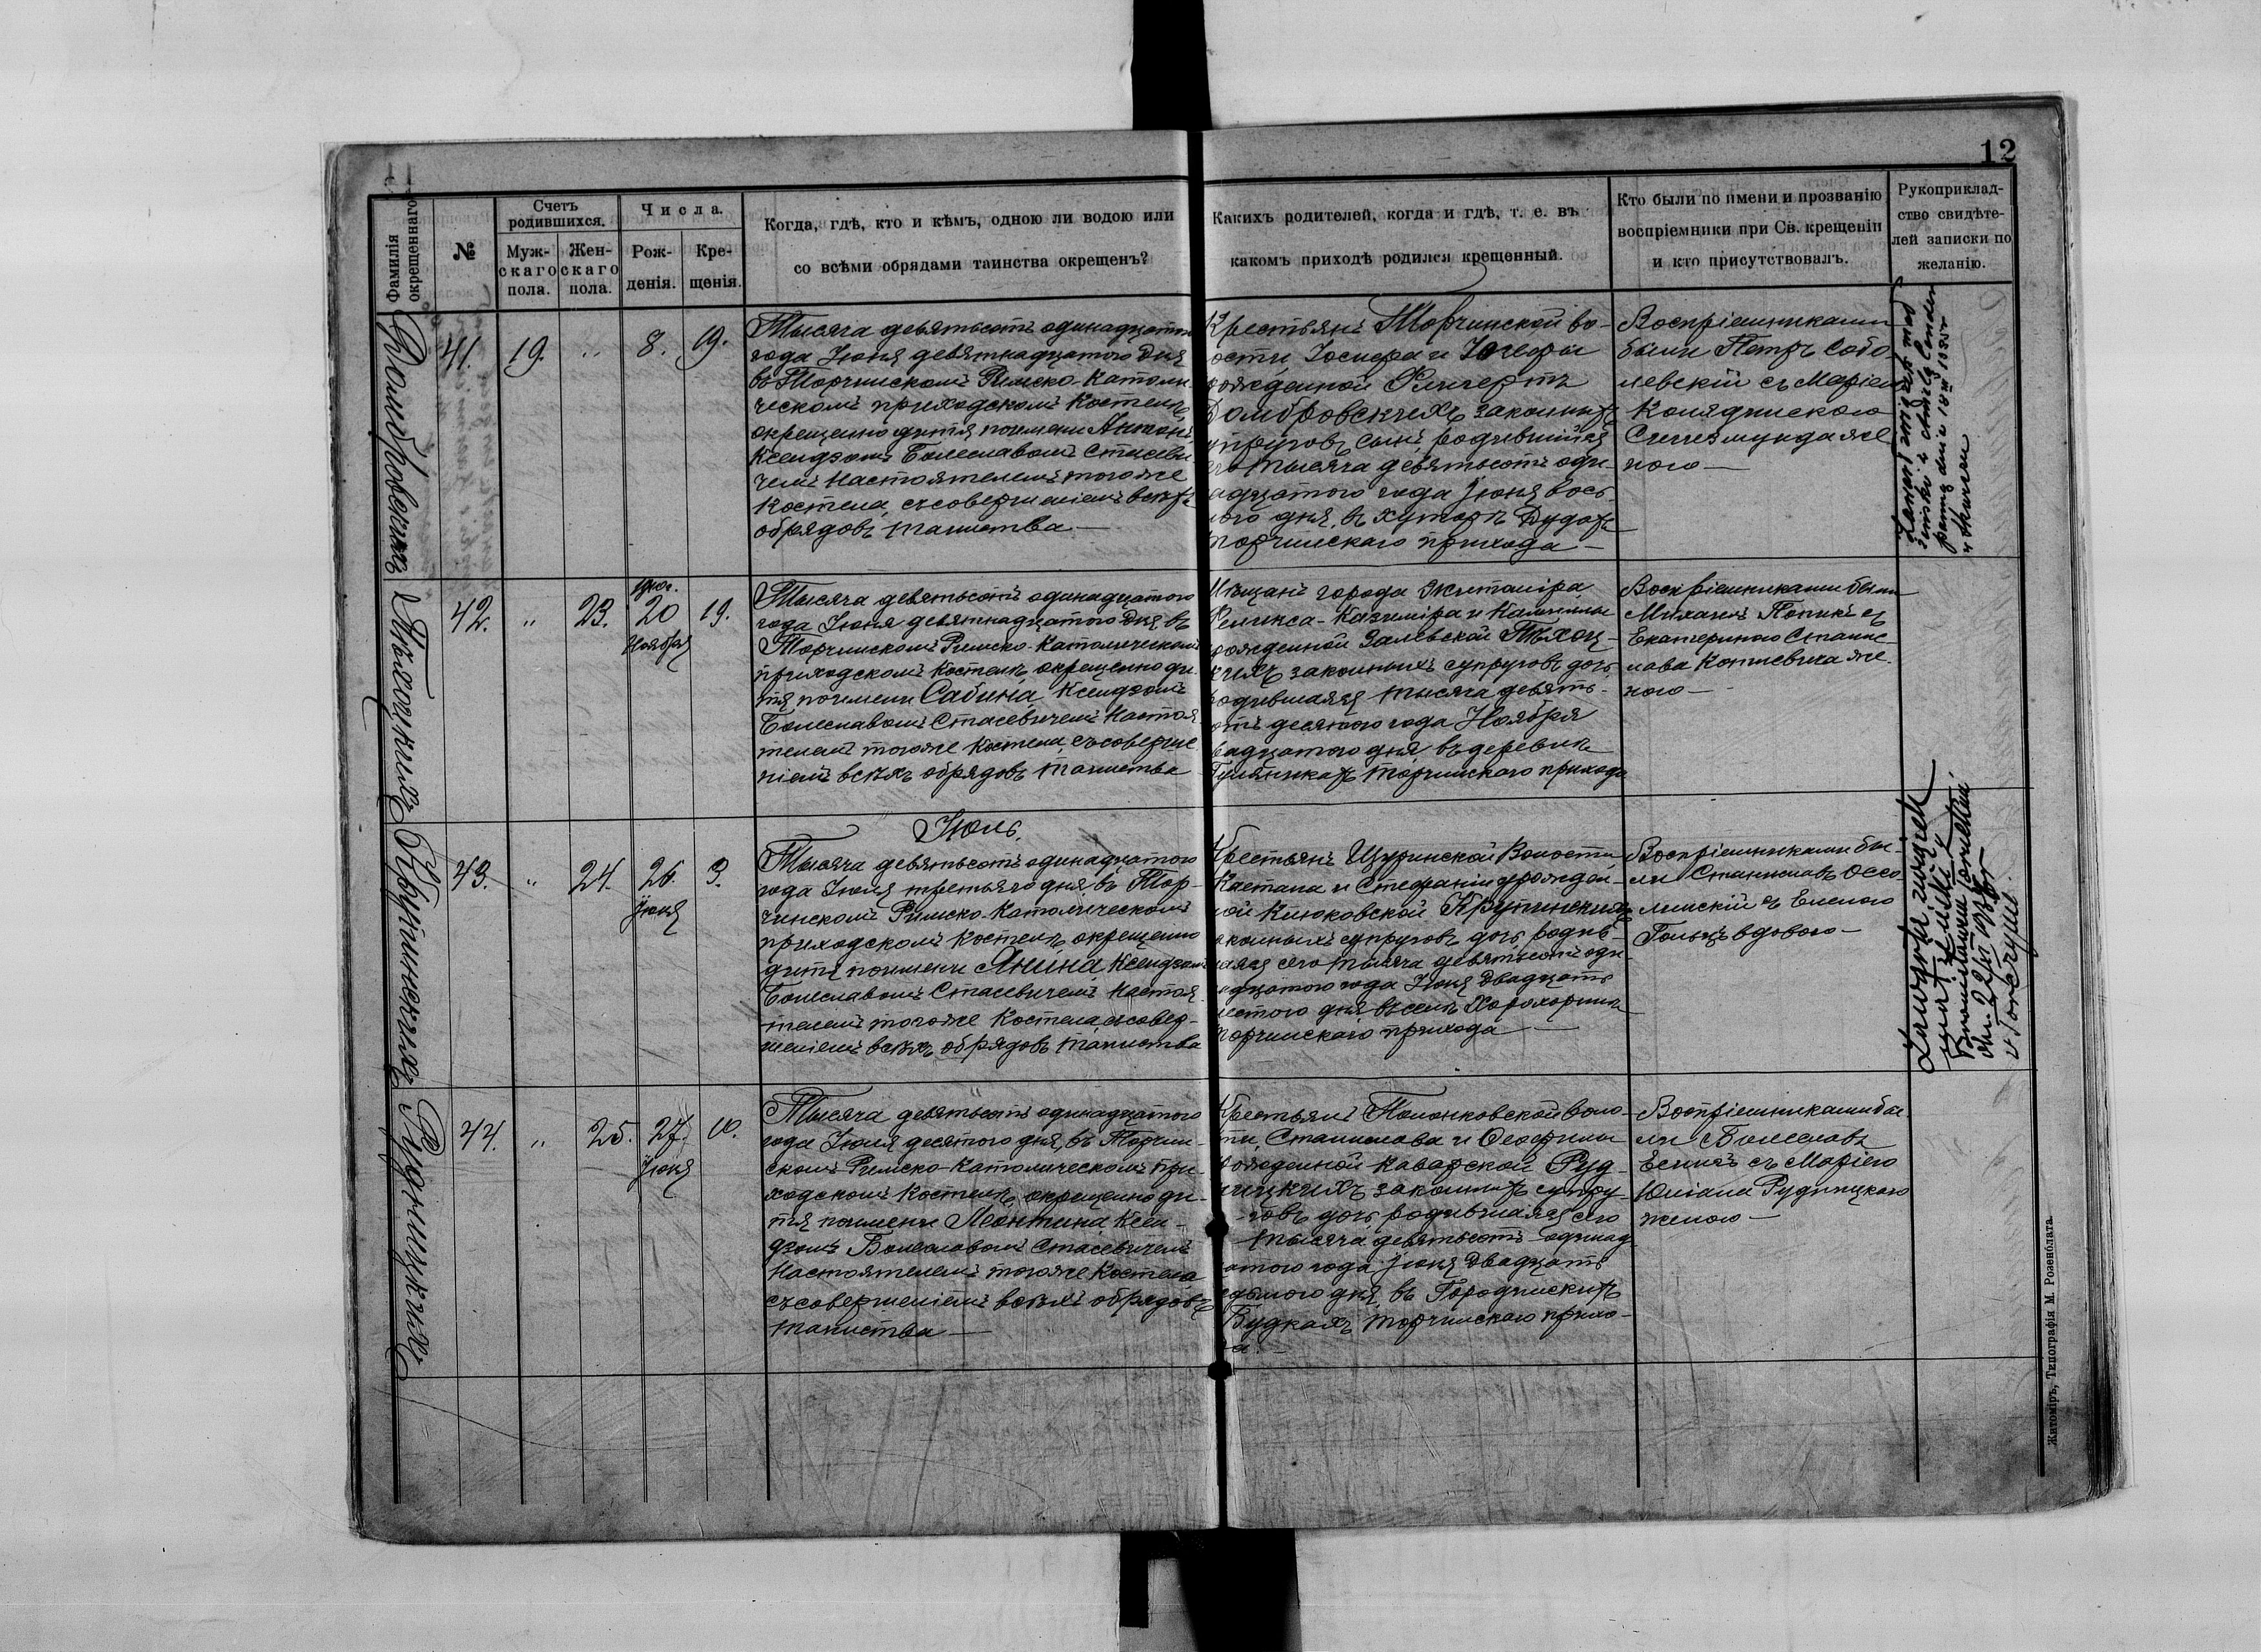 11
12
Фамилія окрещеннаго
№
Счетъ родившихся.
Муж-скаго пола.
Жен-скаго пола.
Числа.
Рож-денія.
Кре-щенія.
Когда, гдѣ, кто и кѣмъ, одною ли водою или
со всѣми обрядами таинства окрещенъ?
Какихъ родителей, когда и гдѣ, т. е. въ
какомъ приходѣ родился крещенный.
Кто были по имени и прозванію
воспріемники при Св. крещеніи
и кто присутствовалъ.
Рукоприклад-
ство свидѣте-
лей записки по
желанію.
Домбровскихъ
41.
19.
"
8.
19.
Тысяча девятьсотъ одинадцатаго
года Іюня девятнадцатого дня
въ Торчинскомъ Римско-Католи-
ческомъ приходскомъ Костелѣ
окрещено дитя по имени Антонъ
Ксендзомъ Болеславомъ Стасеви-
чемъ Настоятелемъ того же
Костела, съ совершеніемъ всѣхъ
обрядовъ таинства —
Крестьянъ Торчинской во-
ости Іосифа и
рожденной
Домбровскихъ законныхъ
упруговъ сынъ, родившійся
его тысяча девятьсотъ оди-
адцатого года Іюня вось-
ого дня, въ хуторѣ
торчинскаго прихода —
Воспріемниками
были Петръ Собо-
левскій съ Маріею
Колядинскою
Сигизмунда же-
ною —
42.
"
23.
20
Ноября
19.
Тысяча девятьсотъ одинадцатого
года Іюня девятнадцатого дня въ
Торчинскомъ Римско-Католическомъ
приходскомъ Костелѣ окрещено ди-
тя по имени Сабина Ксендзомъ
Болеславомъ Стасевичемъ Настоя-
телемъ того же Костела, съ соверше-
ніемъ всѣхъ обрядовъ таинства
Мѣщанъ города Житоміра
Феликса-Казиміра и Камиллы
рожденной Залевской
кихъ законныхъ супруговъ дочь,
родившаяся тысяча девять-
отъ десятого года Ноября
вадцатого дня въ деревнѣ
торчинскаго прихода
Воспріемниками были
Михаилъ Попикъ съ
Екатериною Станис-
лава же-
ною —
Июль.
Крупинскихъ
43.
"
24.
26.
Июня
3.
Тысяча девятьсотъ одинадцатого
года Июля третьяго дня, въ Тор-
чинскомъ Римско-Католическомъ
приходскомъ Костелѣ окрещено
дитя по имени Янина Ксендзомъ
Болеславомъ Стасевичемъ Настоя-
телемъ того же Костела, съ совер-
шеніемъ всѣхъ обрядовъ таинства
Крестьянъ Щуринской Волости
Каетана и Стефаніи урожден-
ной Клюковской Крупинскихъ
аконныхъ супруговъ дочь, родив-
аяся сего тысяча девятьсотъ оди-
адцатого года Июня двадцать
естого дня въ селѣ Хорохоринѣ
торчинскаго прихода —
Воспріемниками бы-
ли Станиславъ Оссо-
линскій съ Еленою
Гольцъ вдовою —
Рудницкихъ
44.
"
25.
27.
Июня
10.
Тысяча девятьсотъ одинадцатого
года Июля десятого дня, въ Торчин-
скомъ Римско-Католическомъ при-
ходскомъ Костелѣ, окрещено ди-
тя по имени Леонтина Ксен-
дзомъ Болеславомъ Стасевичемъ
Настоятелемъ того же Костела
съ совершеніемъ всѣхъ обрядовъ
таинства —
Крестьянъ Полонковской воло-
ти, Станислава и Теофилы
рожденной Каварской Руд-
ницкихъ законныхъ супру-
говъ дочь, родившаяся сего
тысяча девятьсотъ одинад-
атого года Июня двадцать
едьмого дня, въ Городискихъ
Будкахъ торчинскаго прихо-
а. —
Воспріемниками бы-
ли Болеславъ
съ Маріею
Юліана Рудницкаго
женою —
Житоміръ, Типографія М. Розенблата.